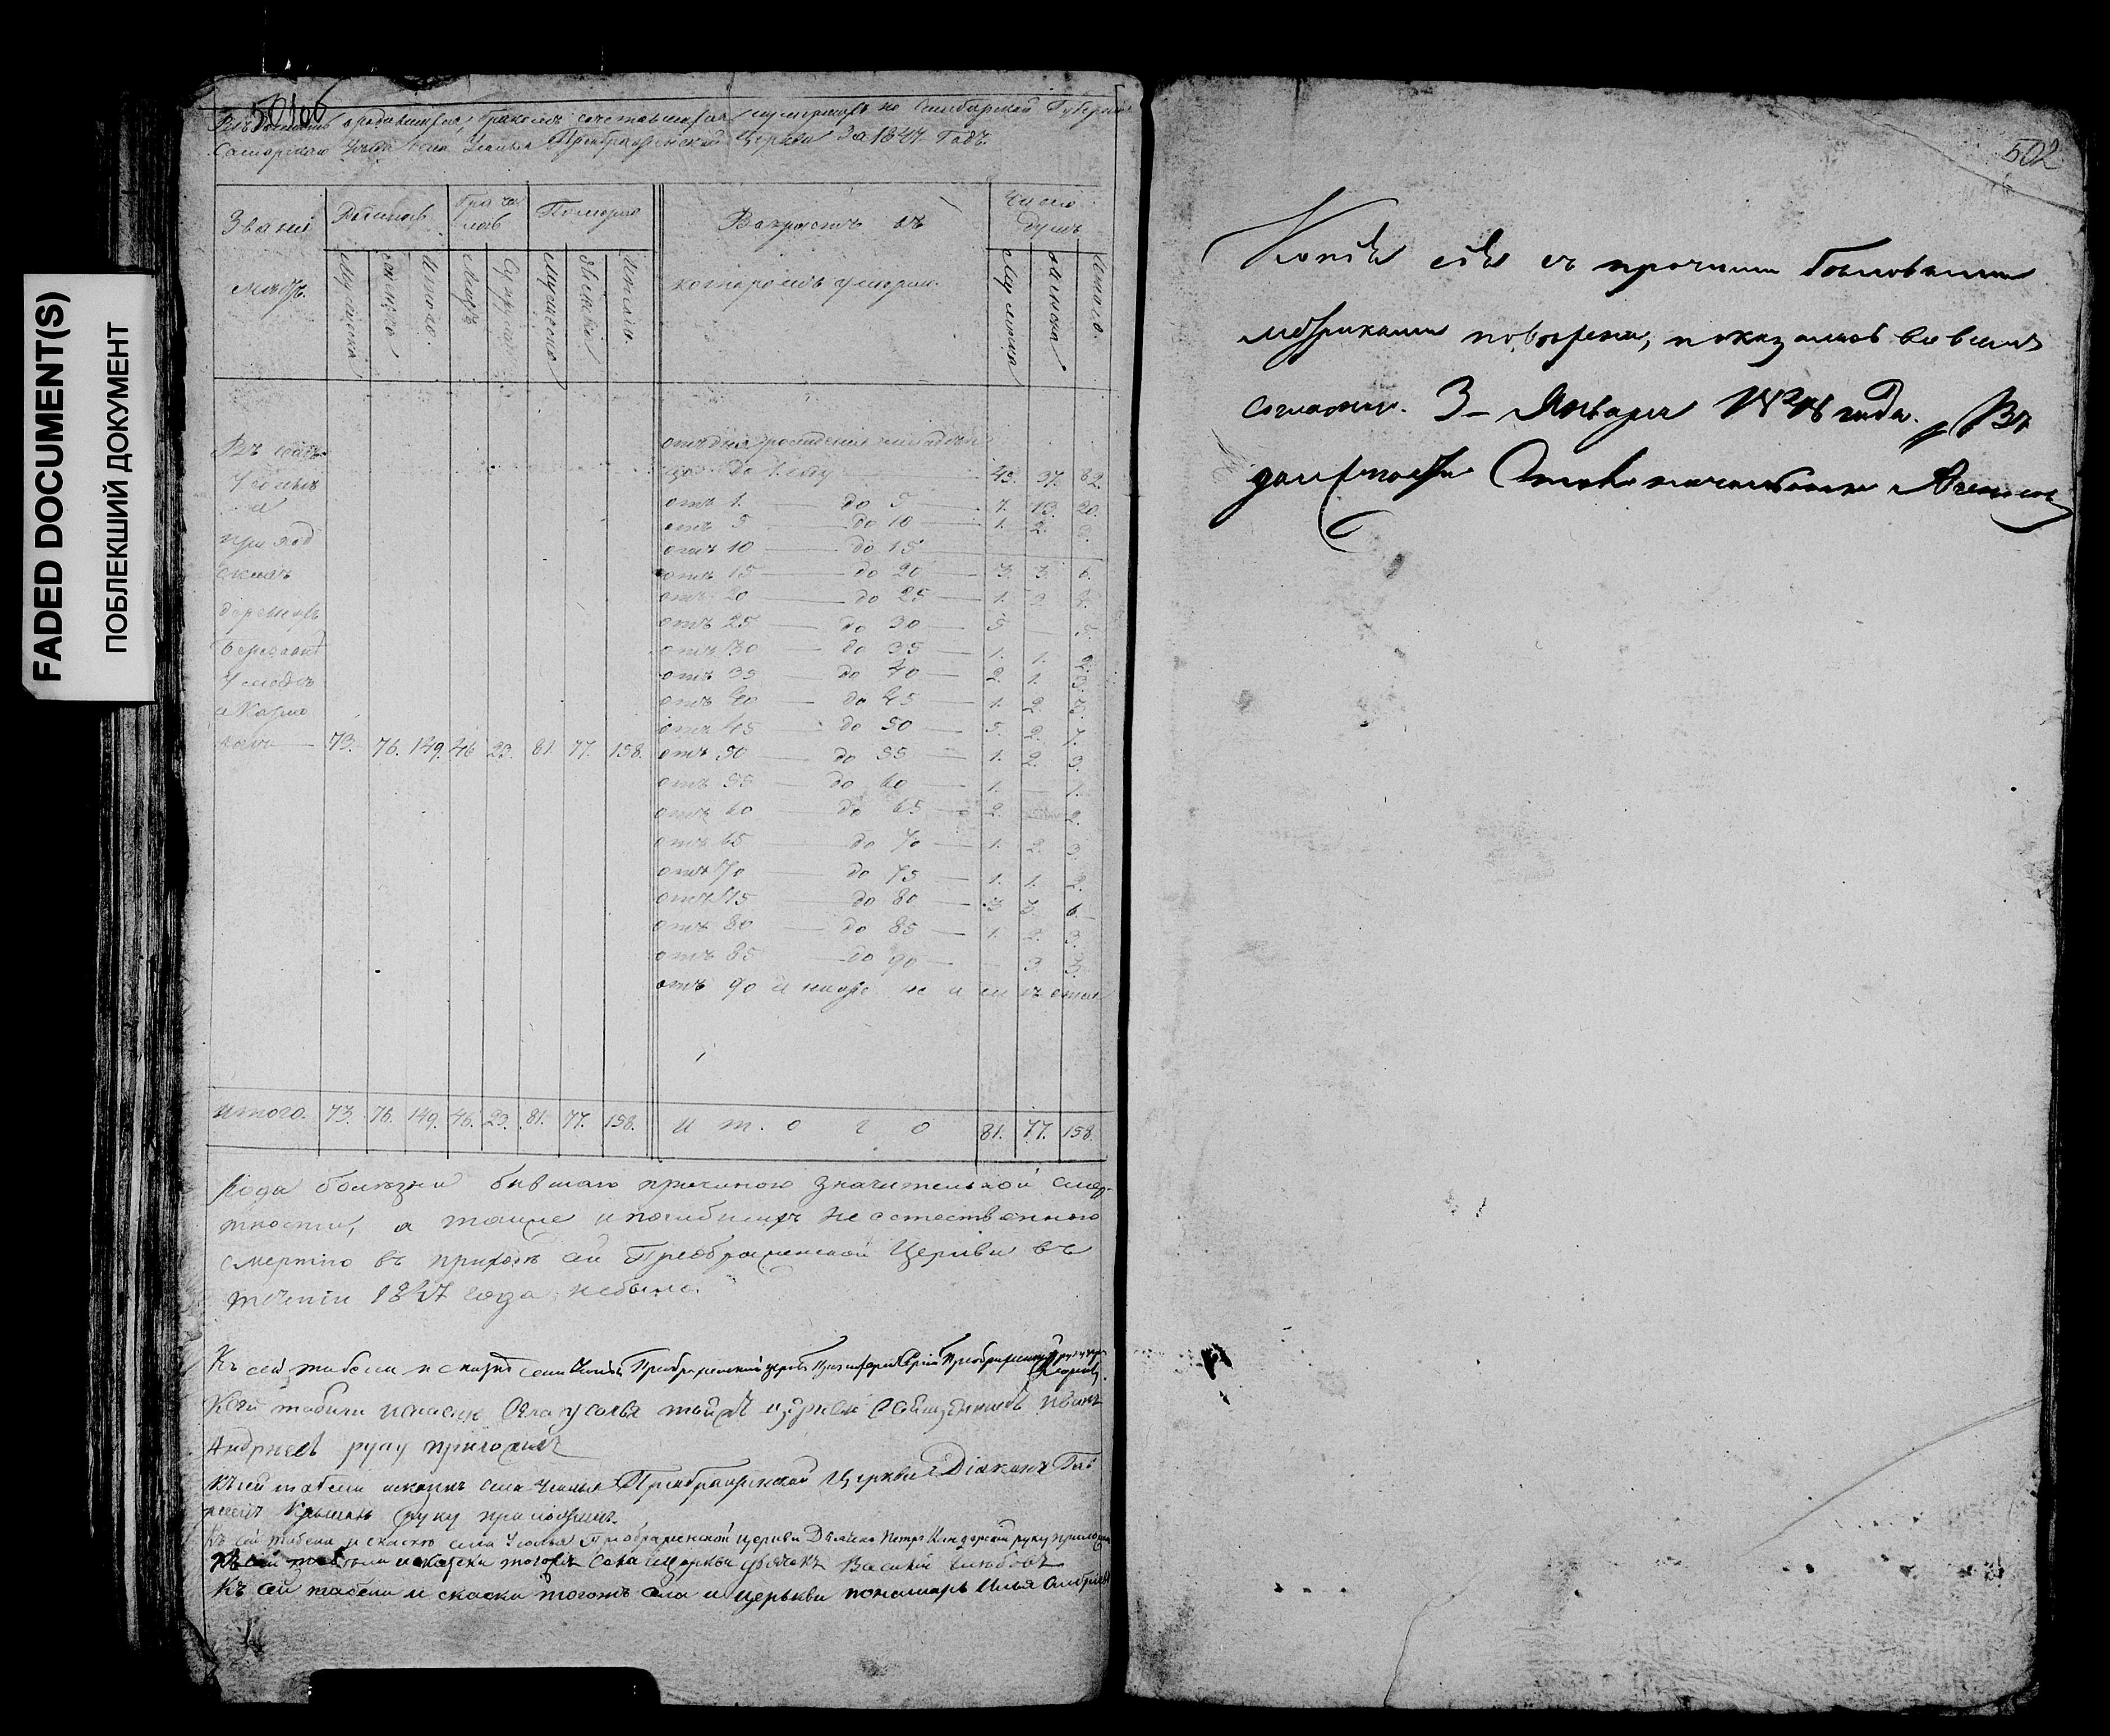 FADED DOCUMENT(S)
ПОБЛЕКШИЙ ДОКУМЕНТ
501об
Вѣдомость о родившихся, бракомъ сочетавшихся и умершихъ по Симбирской Губернiи
Самарскаго Уѣзда села Усолья Преображенской Церкви За 1847 Годъ.
Званiе мѣстъ.
Родилось
Бра ча лось
Померло
Возрастъ въ которомъ умерли.
Число душъ
Мужеска Женска Итого. Мужеска Женска Итого. Мужеска Женска Итого.
Въ селѣ
Усольѣ
и
при ход
скихъ
деревняхъ
73. 76. 149. 46 23. 81. 77. 158.
отъ дня рожденiя
до 1. году 45. 37. 82.
отъ 1. до 5 7. 13. 20.
отъ 5 до 10 1. 2. 3.
отъ 10 до 15
отъ 15 до 20 3. 3. 6.
отъ 20 до 25 1. 3.
отъ 25 до 30 5 — 5.
отъ 30 до 35 1. 1. 2.
отъ 35 до 40 2. 1. 3.
отъ 40 до 45 1. 2. 3.
отъ 45 до 50 5. 2. 7.
отъ 50 до 55 1. 2. 3.
отъ 55 до 60 1. — 1.
отъ 60 до 65 2. — 2.
отъ 65 до 70 1. 2. 3.
отъ 70 до 75 1. 1. 2.
отъ 75 до 80 3 3. 6.
отъ 80 до 85 1. 2. 3.
отъ 85 до 90 — 3. 3.
отъ 90 и выше не имѣется
итого. 73. 76. 149. 46. 23. 81. 77. 158. и т. о г о 81. 77. 158.
Рода болезни бывшаго причиною значительной смер-
тности, а также и погибшихъ не естественною
смертiю въ приходѣ сей Преображенской Церкви въ
теченiи 1847 года небыло.
Къ сей табели и сказке села Усолья Преображенской церкви
Ксей табели исказке села усолья тойже церкви Священникъ Иванъ
Андреевъ руку приложилъ
Ксей табели исказкѣ села Усолья Преображенской Церкви Дiаконъ Гав
руку приложилъ.
Къ сей табели и сказке села Усолья Преображенской церкви Дьячекъ Петръ руку приложилъ
Къ сей табели исказки тогожъ Села ицеркви дьячокъ Василiй
Къ сей табели и скаски тогожъ села и церькви пономарь Илья
502
Копiя сiя съ прочими бѣловыми
метриками поверена, показалась во всемъ
согласною. 3 – Января 1848 года. Въ
должности Столоначальника